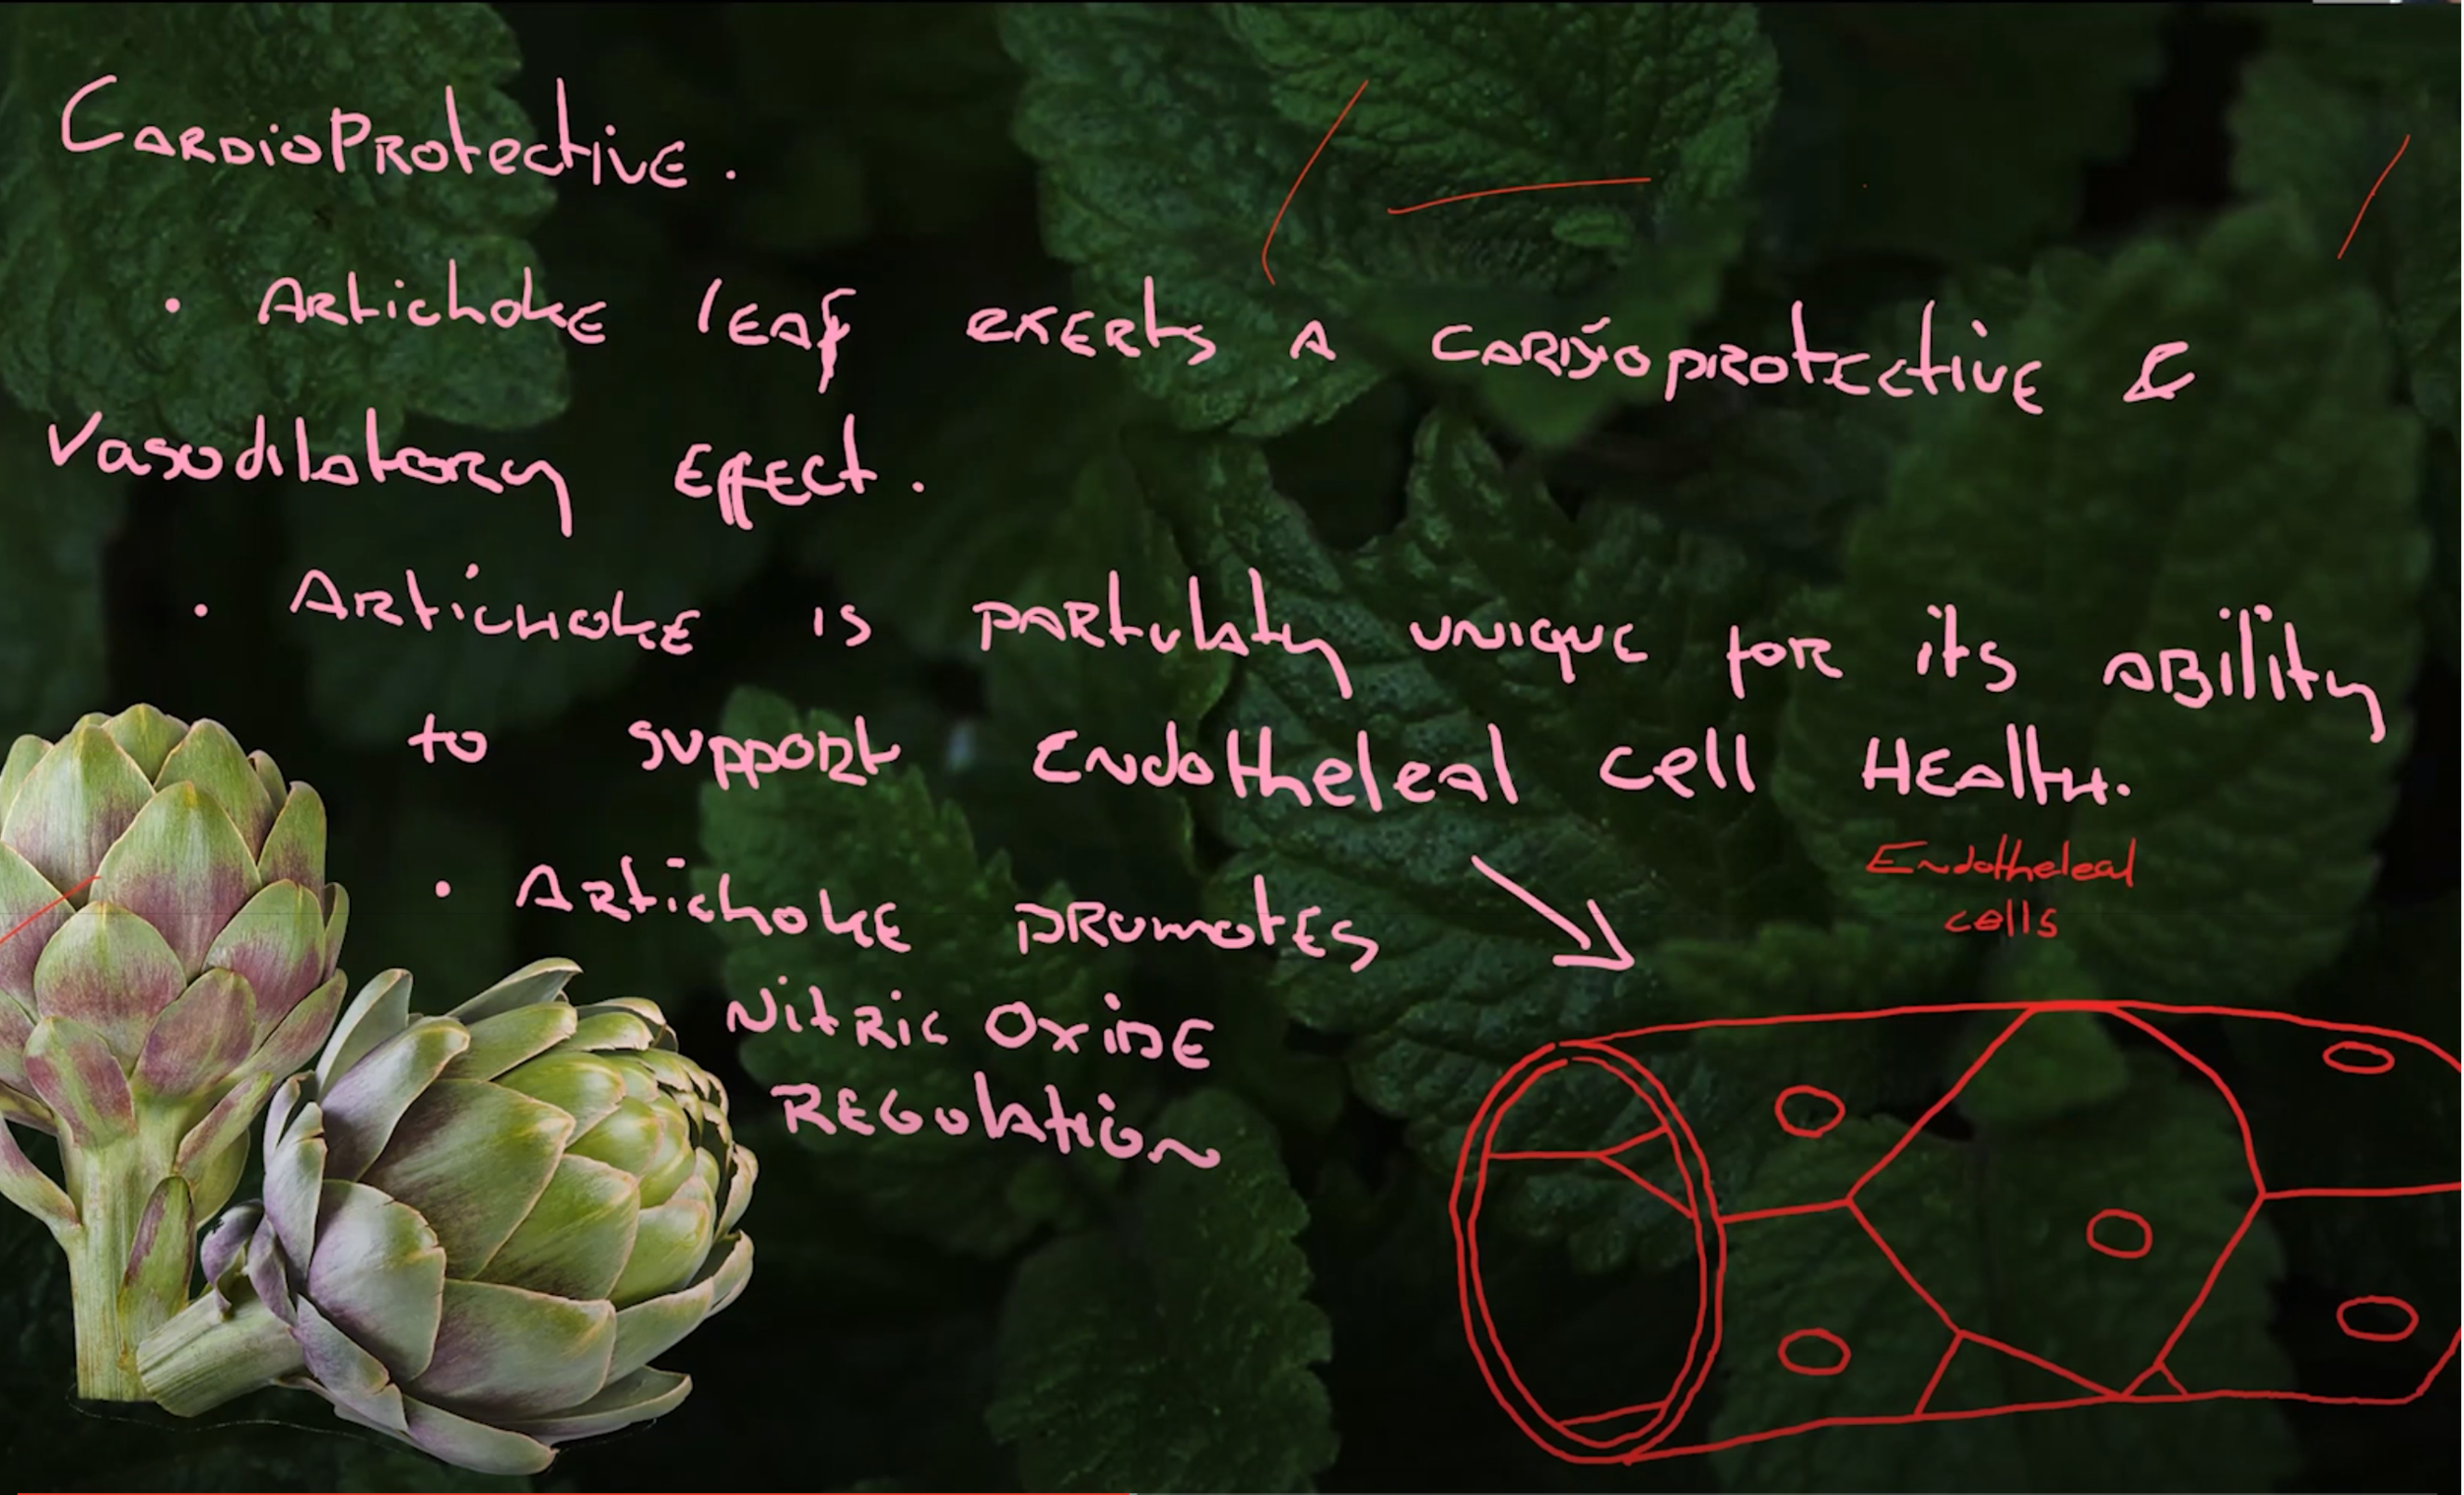 CardioProtective.
• Artichoke leaf exerts a cardioprotective &
Vasodilatory Effect.
• Artichoke is partulaty unique for its ability
to support Endotheleal cell Health.
Endotheleal
cells
• Artichoke promotes
Nitric Oxide
Regulation